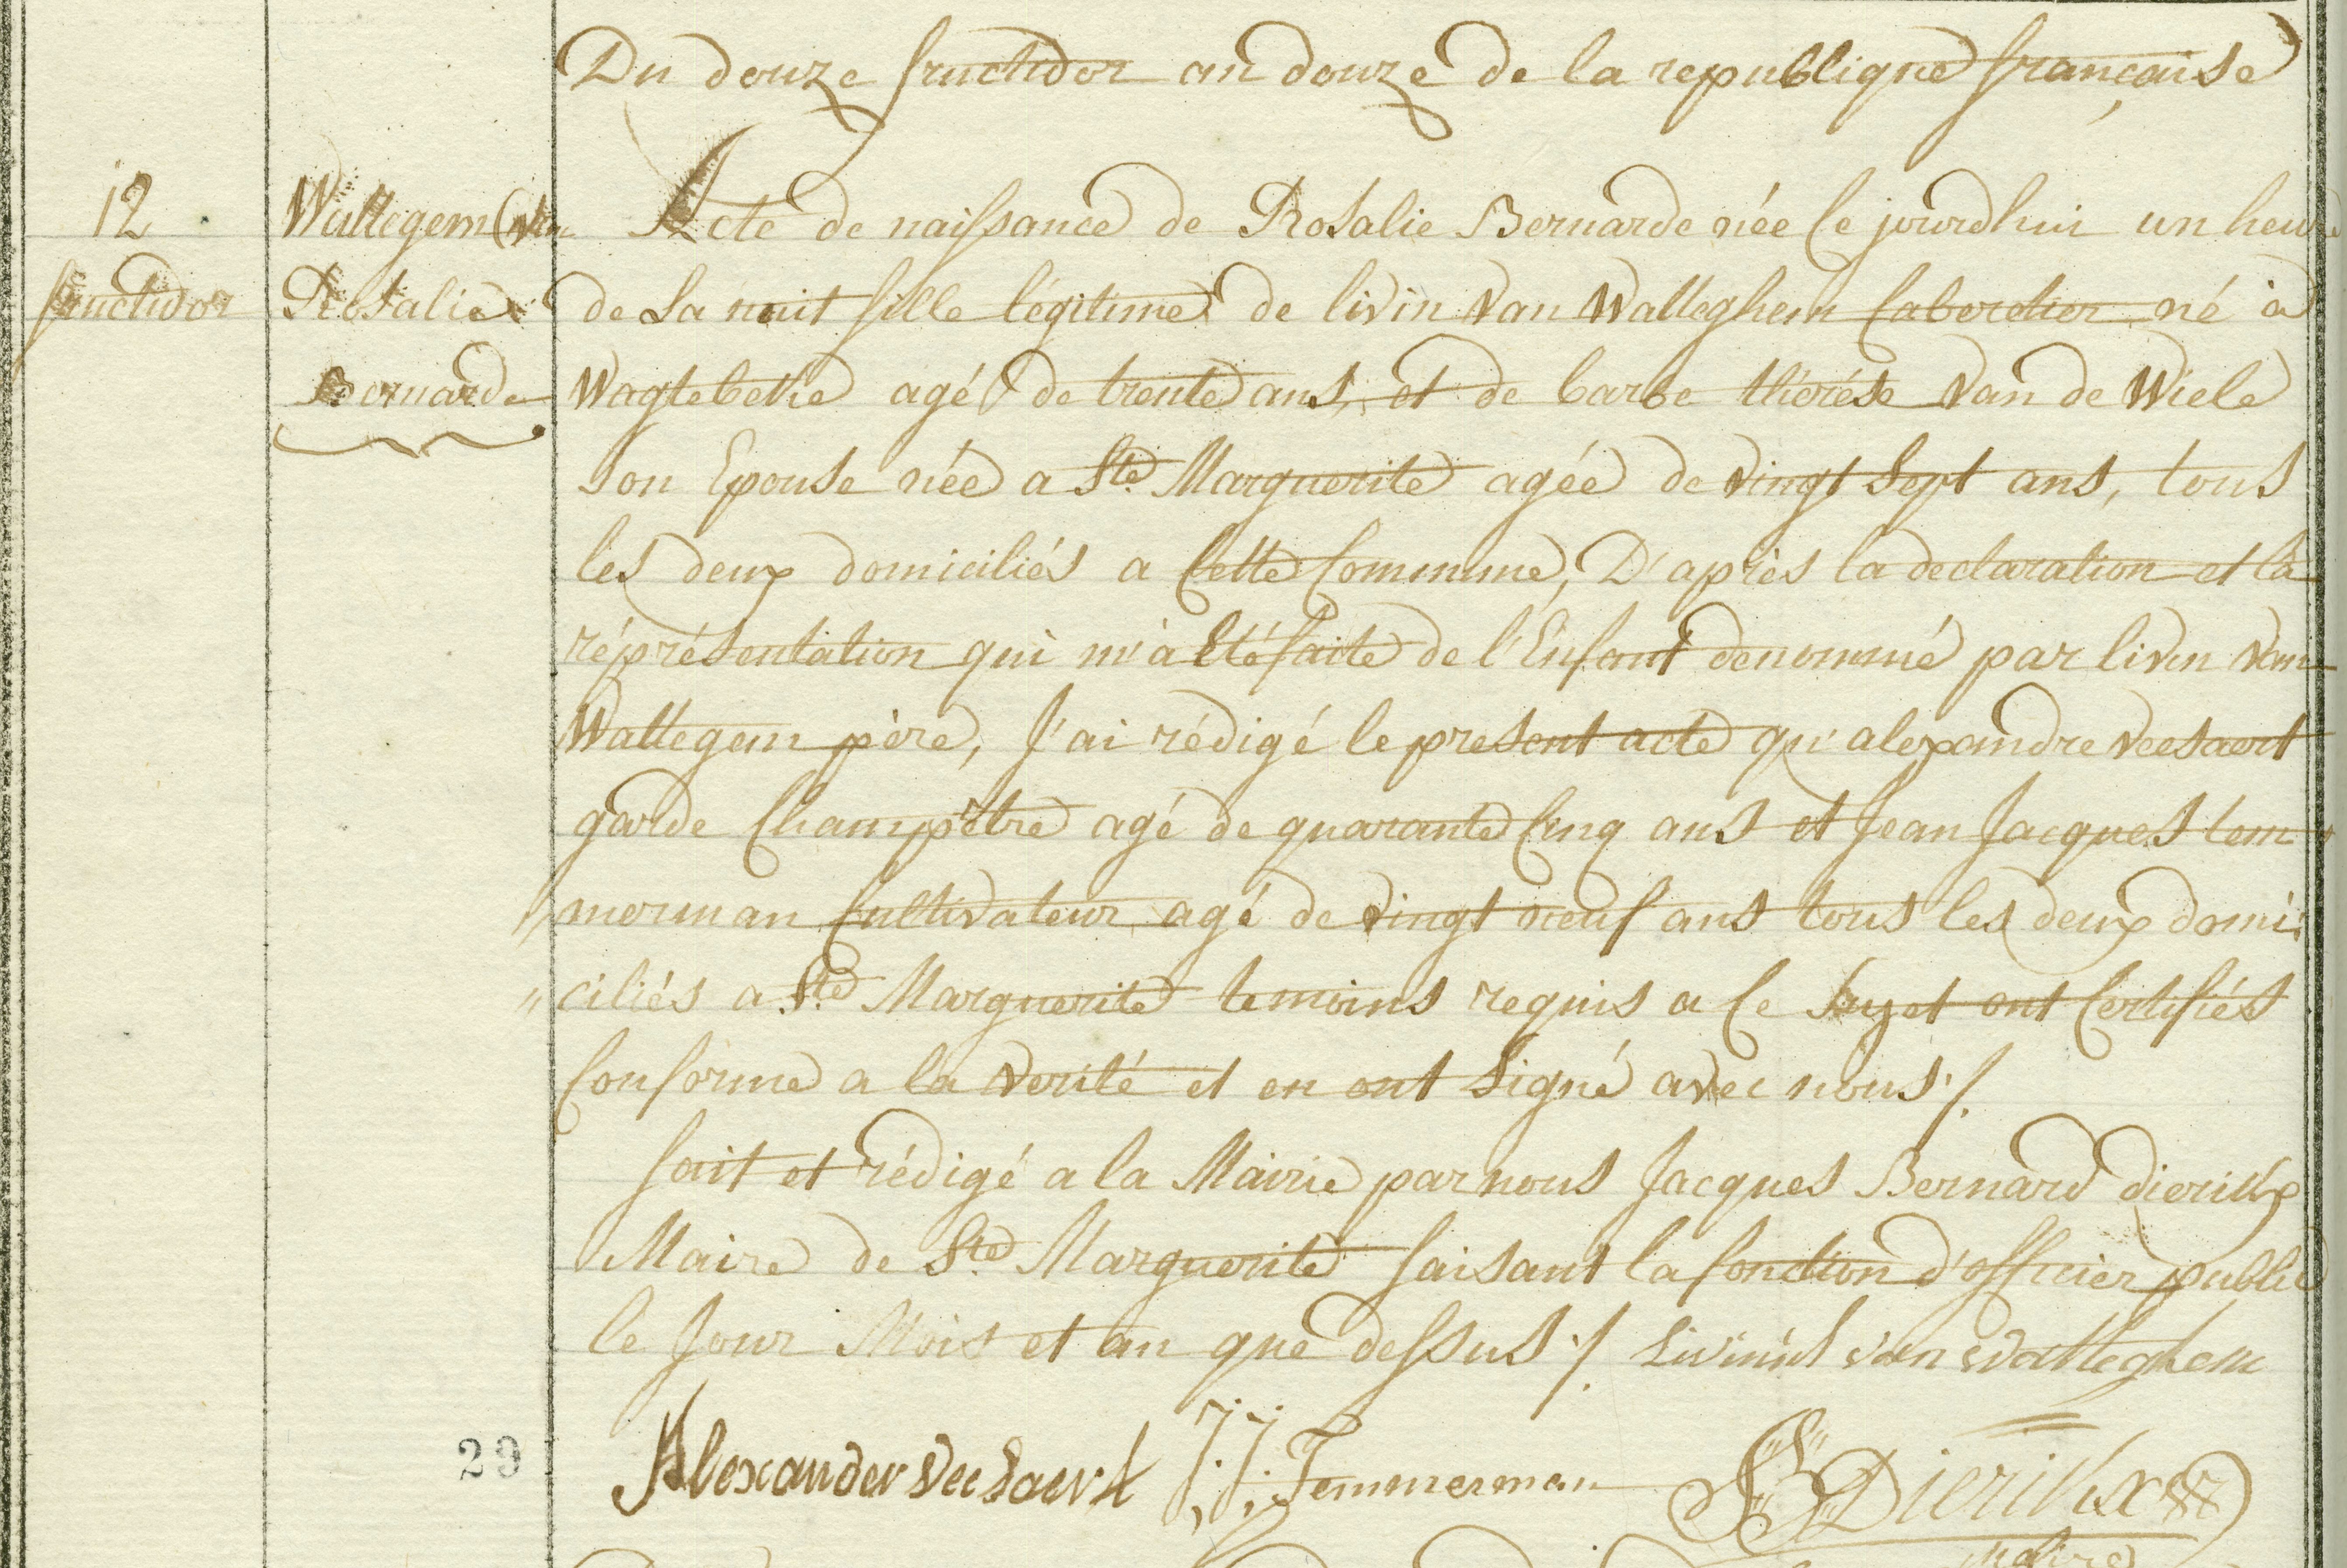 Du douze fructidor an douze de la republique française
12
fructidor
Wallegem (Van
Rosalie
Bernarde
Acte de naissance de Rosalie Bernarde née ce jourdhui un heure
de la nuit fille légitime de livin Van Walleghem cabaretier né à
Wagtebeke agé de trente ans, et de barbe thérése Van de Wiele
son Epouse née a Ste Marguerite agée de vingt sept ans, tous
les deux domiciliés a cette commune, D'après la declaration et la
réprésentation qui m'à Eté faite de l'Enfant denommé par livin Van
Wallegem père, J'ai rédigé le present acte qu'alexandre Veesaert
garde Champètre agé de quarante cinq ans et Jean Jacques tem
merman cultivateur agé de vingt neuf ans tous les deux domi
ciliés a Ste Marguerite temoins requis a ce sujet ont certifiés
conforme a la verité et en ont signé avec nous ./.
fait et rédigé a la Mairie par nous Jacques Bernard dierickx
Maire de Ste Marguerite faisant la fonction d'officier public
le Jour Mois et an que dessus ./. Livinus van Walleghem
29
Alexander Veesaert J:J: Temmerman Dierickx
Maire